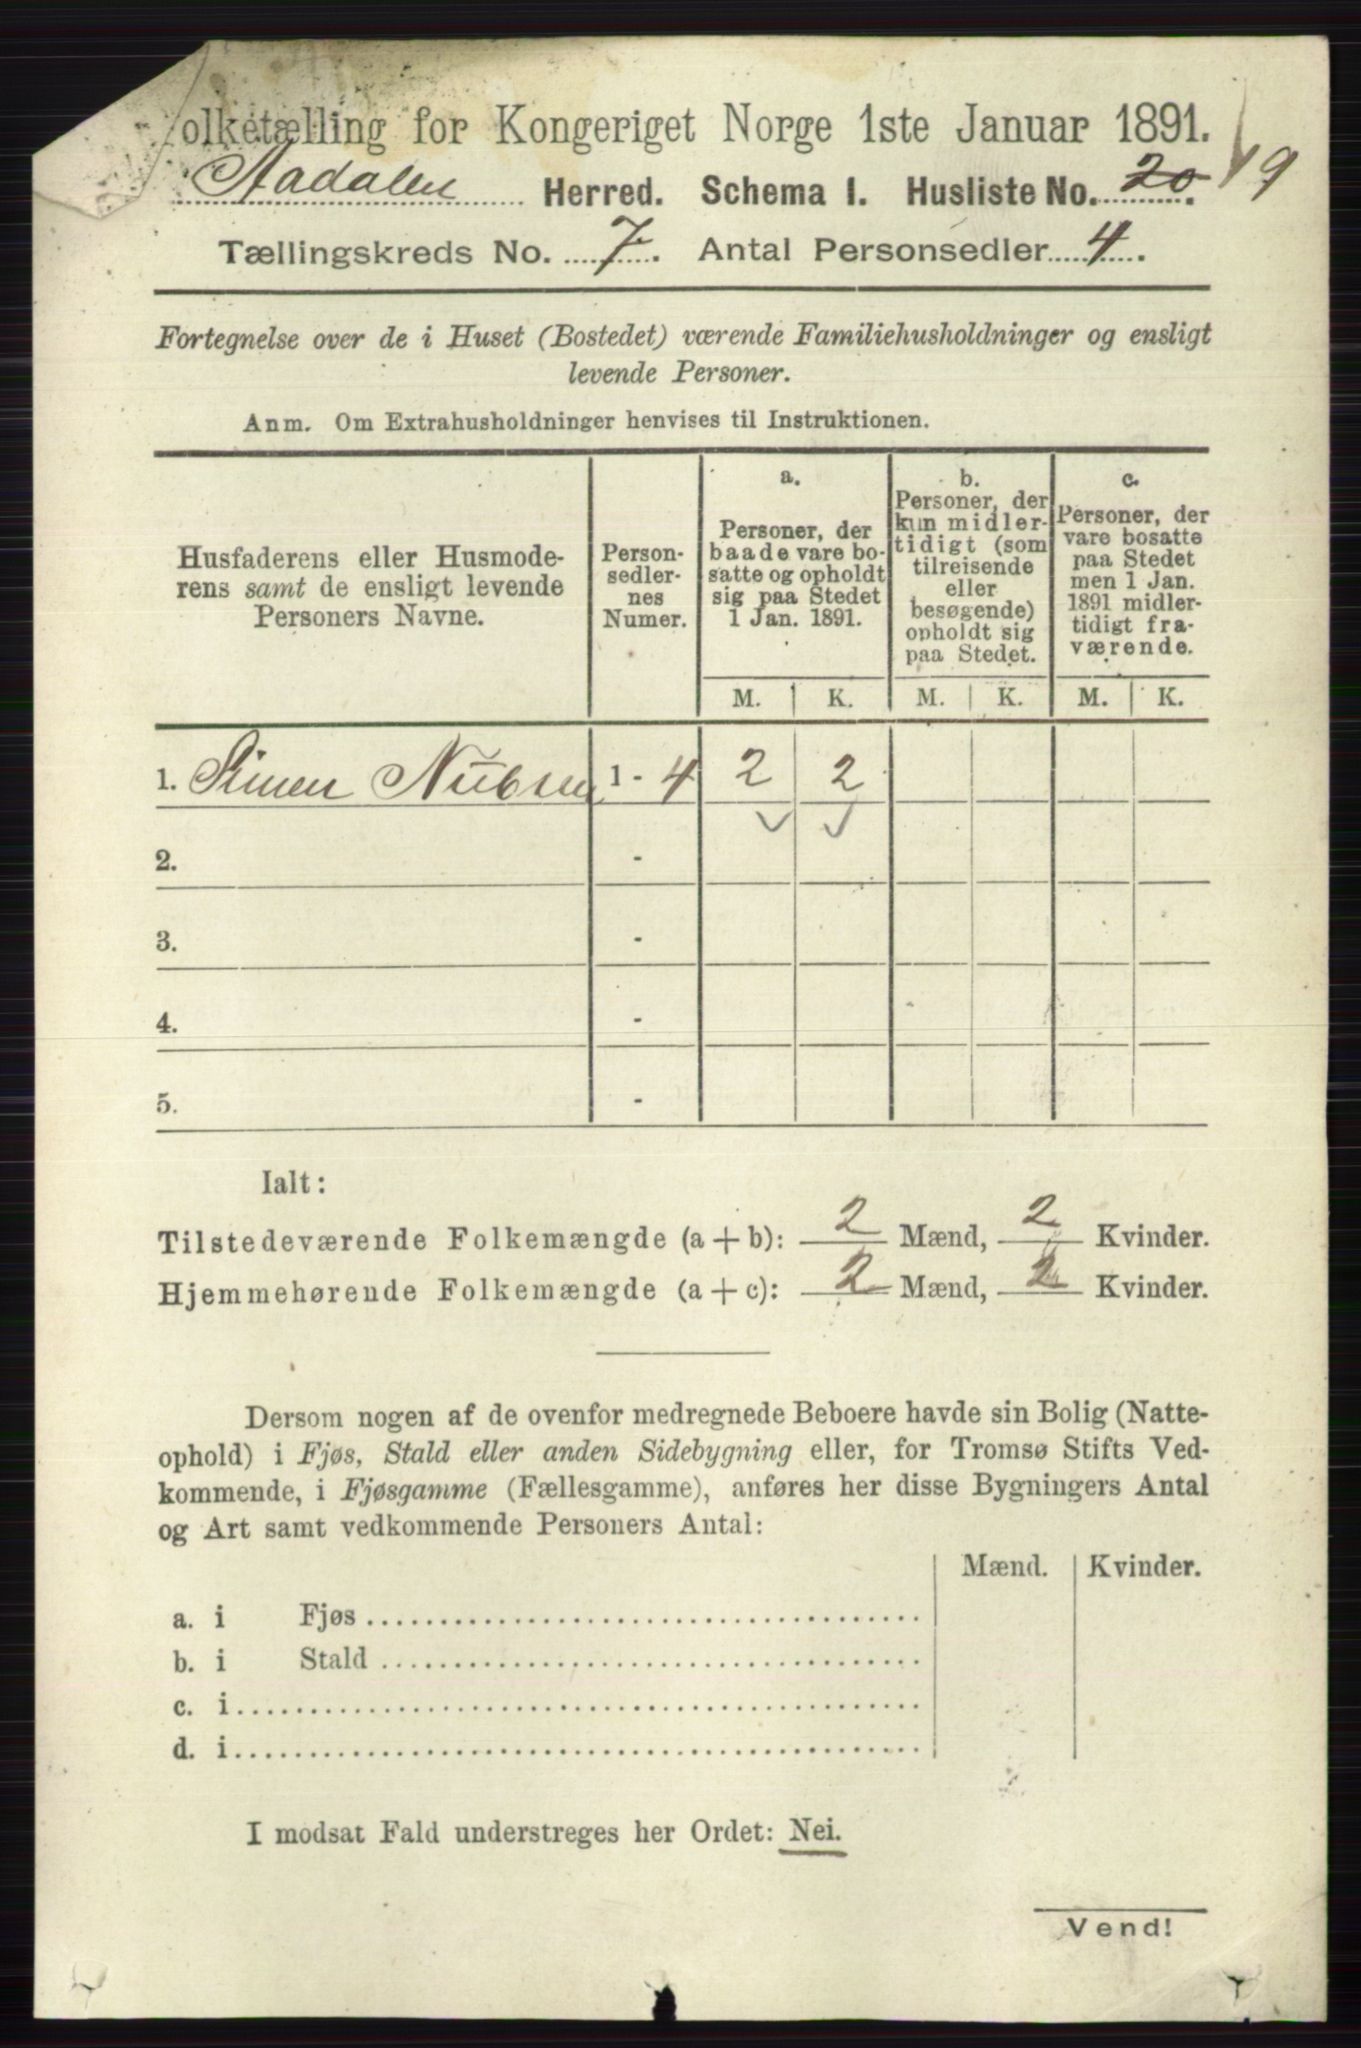 olketælling for Kongeriget Norge 1ste Januar 1891.
Aadalen Herred. Schema I. Husliste No. 20. 19
Tællingskreds No. 7. Antal Personsedler 4.
Fortegnelse over de i Huset (Bostedet) værende Familiehusholdninger og ensligt
levende Personer.
Anm. Om Extrahusholdninger henvises til Instruktionen.
Husfaderens eller Husmode-
rens samt de ensligt levende
Personers Navne.
Person-
sedler-
nes
Numer.
a.
Personer, der
baade vare bo-
satte og opholdt
sig paa Stedet
1 Jan. 1891.
b.
Personer, der
kun midler-
tidigt (som
tilreisende
eller
besøgende)
opholdt sig
paa Stedet.
c.
Personer, der
vare bosatte
paa Stedet
men 1 Jan.
1891 midler-
tidigt fra-
værende.
M. K. M. K. M. K.
1. Simen Nubsen 1 - 4 2 2
2. -
3. -
4. -
5. -
Ialt:
Tilstedeværende Folkemængde (a + b): 2 Mænd, 2 Kvinder.
Hjemmehørende Folkemængde (a + c): 2 Mænd, 2 Kvinder.
Dersom nogen af de ovenfor medregnede Beboere havde sin Bolig (Natte-
ophold) i Fjøs, Stald eller anden Sidebygning eller, for Tromsø Stifts Ved-
kommende, i Fjøsgamme (Fællesgamme), anføres her disse Bygningers Antal
og Art samt vedkommende Personers Antal:
Mænd. Kvinder.
a. i Fjøs
b. i Stald
c. i
d. i
I modsat Fald understreges her Ordet: Nei.
Vend!